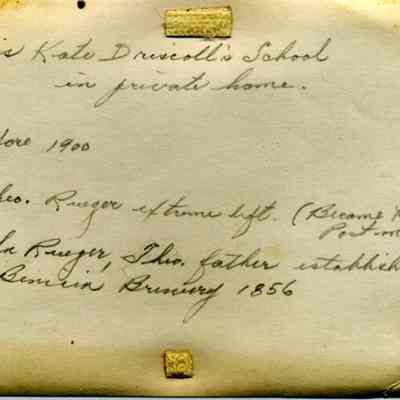 s Kate Driscoll's School
in private home.
fore 1900
heo. Rueger extreme left. (Became
Post m
Rueger, Theo. father establish
Benicia Brewery 1856